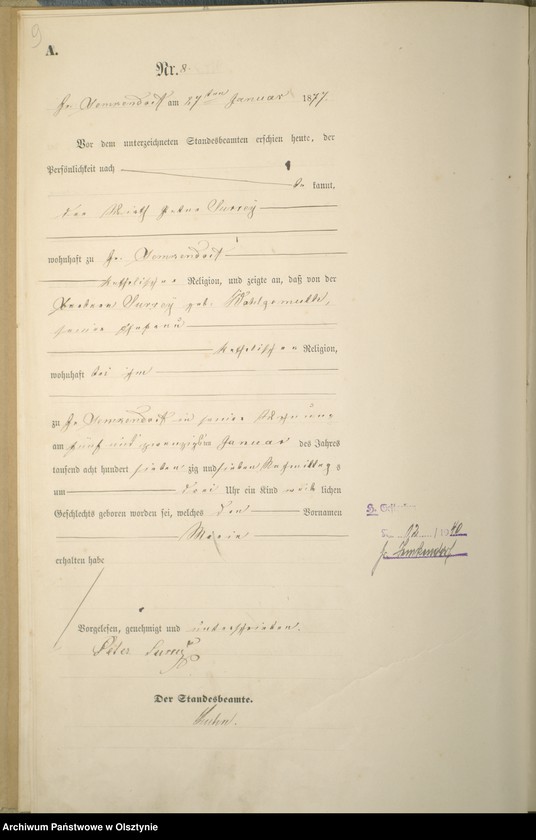 9
A.
Nr. 8.
Gr. Lemkendorf am 27ten Januar 1877.
Vor dem unterzeichneten Standesbeamten erschien heute, der
Persönlichkeit nach
be kannt,
der Wirth Peter
wohnhaft zu Gr. Lemkendorf
katholischer Religion, und zeigte an, daß von der
Barbara geb. Wohlgemuth,
seiner Ehefrau
katholischer Religion,
wohnhaft bei ihm
zu Gr. Lemkendorf in seiner Wohnung
am fünf und zwanzigsten Januar des Jahres
tausend acht hundert sieben zig und sieben Nachmittag s
um drei Uhr ein Kind weib lichen
Geschlechts geboren worden sei, welches den Vornamen
Maria
erhalten habe
Vorgelesen, genehmigt und unterschrieben.
Peter
Der Standesbeamte.
Gr. Lemkendorf
Archiwum Państwowe w Olsztynie